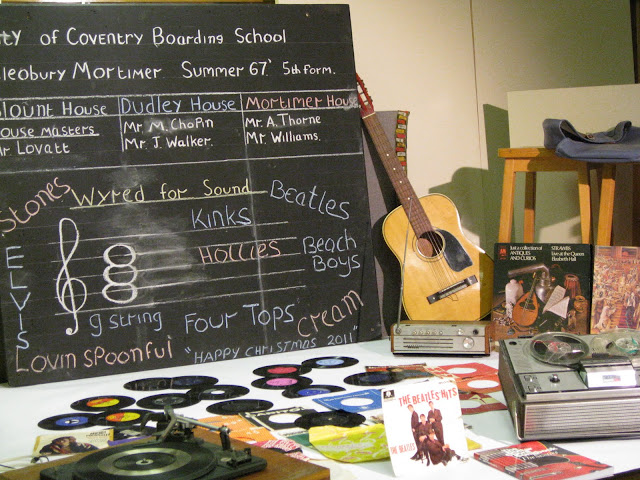 ty of Coventry Boarding School
leobury Mortimer Summer 67' 5th form.
Blount House Dudley House Mortimer House
House Masters Mr. M. Chopin Mr. A. Thorne
Mr Lovatt Mr. J. Walker. Mr. Williams.
Stones Wyred for Sound Beatles
Kinks
ELVIS Hollies Beach Boys
g string Four Tops Cream
Lovin Spoonful "HAPPY CHRISTMAS 2011"
Just a collection of
ANTIQUES
AND CURIOS
STRAWBS
Live at the Queen
Elizabeth Hall
THE BEATLES HITS
THE BEATLES